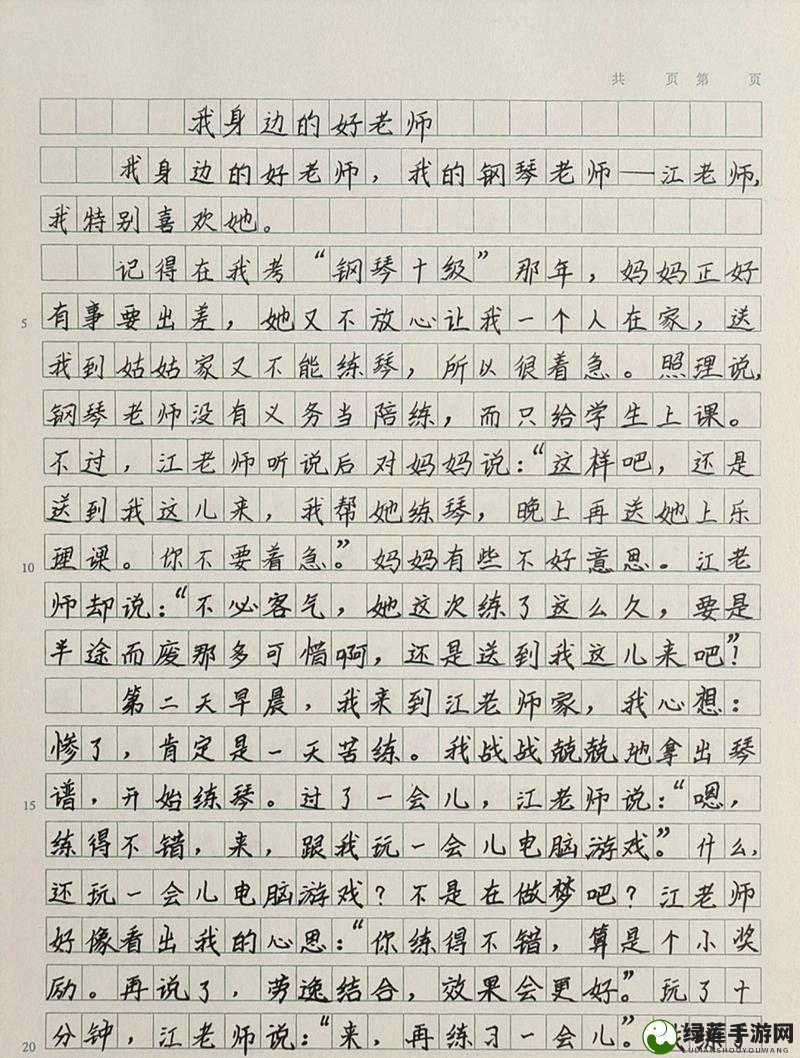 共 页 第 页
我身边的好老师
我身边的好老师，我的钢琴老师——江老师，
我特别喜欢她。
记得在我考“钢琴十级”那年，妈妈正好
5 有事要出差，她又不放心让我一个人在家，送
我到姑姑家又不能练琴，所以很着急。照理说，
钢琴老师没有义务当陪练，而只给学生上课。
不过，江老师听说后对妈妈说：“这样吧，还是
送到我这儿来，我帮她练琴，晚上再送她上乐
10 理课。你不要着急。”妈妈有些不好意思。江老
师却说：“不必客气，她这次练了这么久，要是
半途而废那多可惜啊，还是送到我这儿来吧”！
第二天早晨，我来到江老师家，我心想：
惨了，肯定是一天苦练。我战战兢兢地拿出琴
15 谱，开始练琴。过了一会儿，江老师说：“嗯，
练得不错，来，跟我玩一会儿电脑游戏。”什么，
还玩一会儿电脑游戏？不是在做梦吧？江老师
好像看出我的心思：“你练得不错，算是个小奖
励。再说了，劳逸结合，效果会更好。”玩了十
20 分钟，江老师说：“来，再练习一会儿”。
绿莲手游网